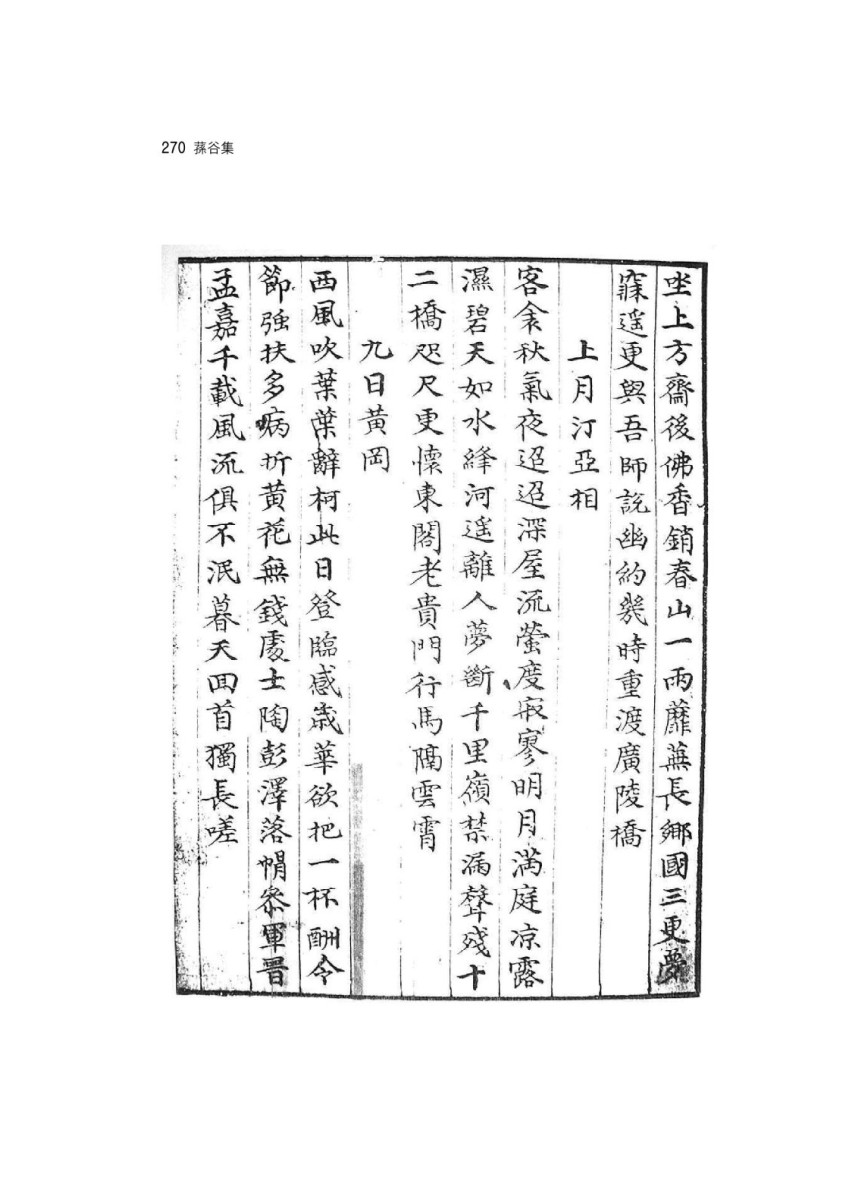 270 蓀谷集
坐上方齋後佛香銷春山一雨蘼蕪長鄉國三更夢
寐遥更與吾師說幽約幾時重渡廣陵橋
上月汀亞相
客舍秋氣夜迢迢深屋流螢度寂寥明月滿庭凉露
濕碧天如水絳河遥離人夢斷千里嶺禁漏聲殘十
二橋咫尺更懷東閣老貴門行馬隔雲霄
九日黃岡
西風吹葉葉辭柯此日登臨感歲華欲把一杯酬令
節強扶多病折黃花無錢處士陶彭澤落帽參軍晉
孟嘉千載風流俱不泯暮天回首獨長嗟